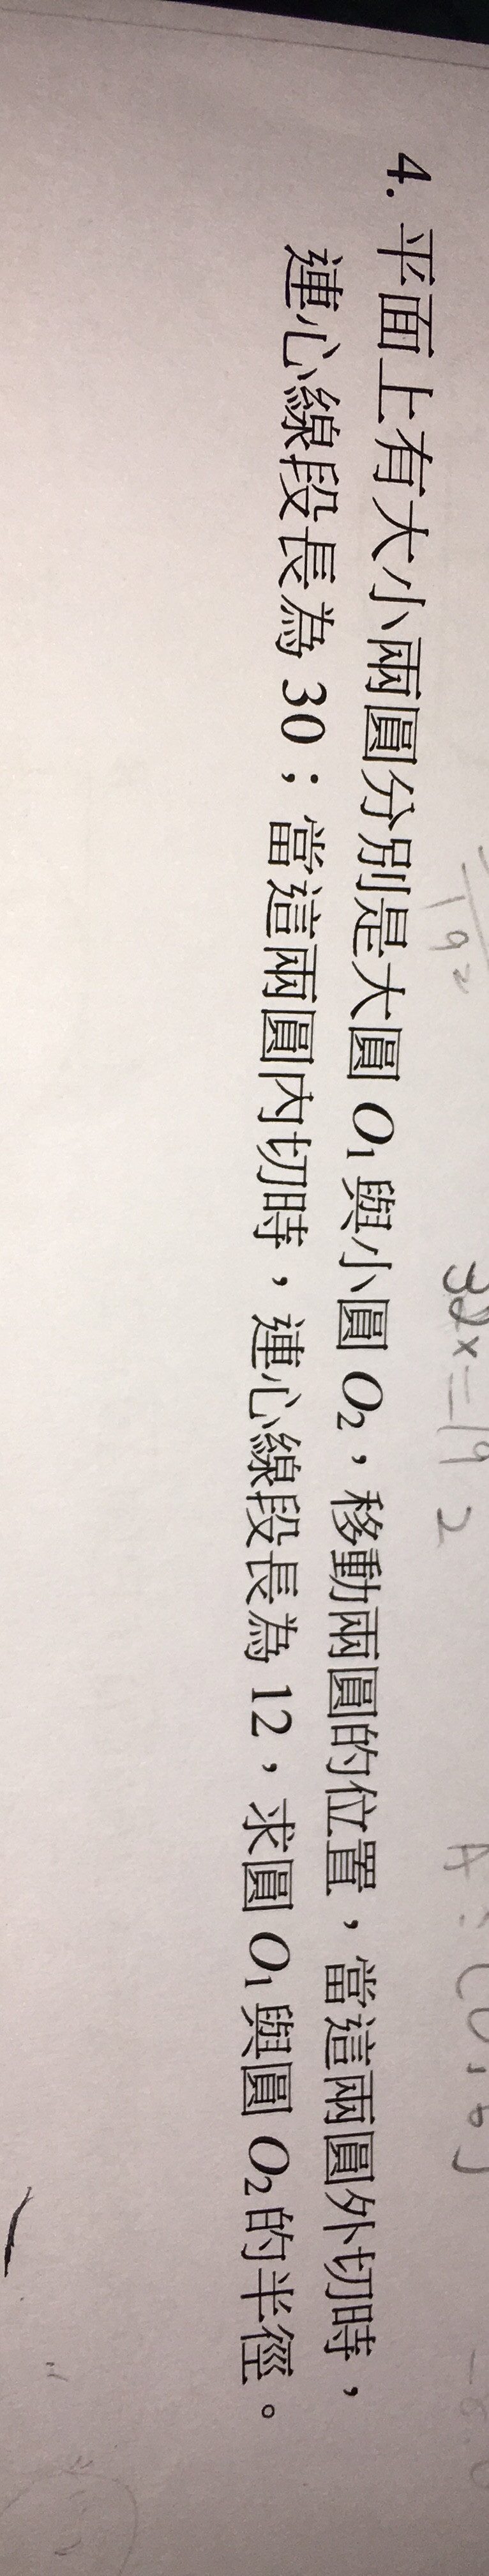 4. 平面上有大小兩圓分別是大圓 O₁ 與小圓 O₂，移動兩圓的位置，當這兩圓外切時，
連心線段長為 30；當這兩圓內切時，連心線段長為 12，求圓 O₁ 與圓 O₂ 的半徑。
192
32x=192